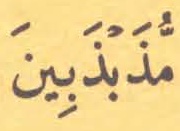 مُّذَبْذَبِينَ